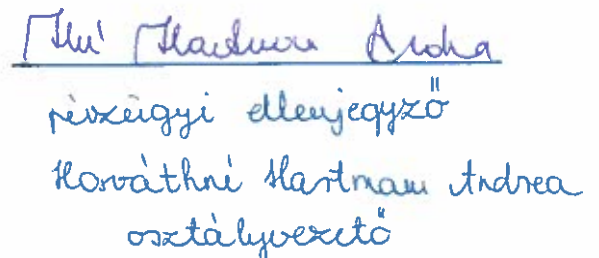 Hné Hartmann Andrea
pénzügyi ellenjegyző
Horváthné Hartmann Andrea
osztályvezető